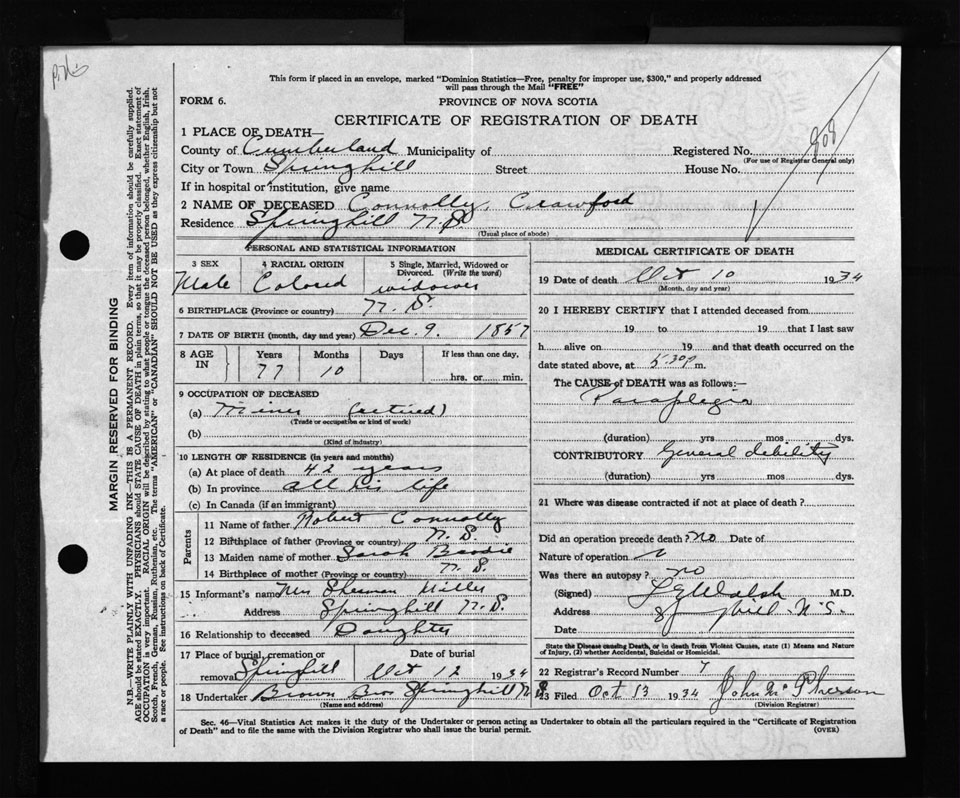 This form if placed in an envelope, marked "Dominion Statistics—Free, penalty for improper use, $300," and properly addressed
will pass through the Mail "FREE"
FORM 6.
PROVINCE OF NOVA SCOTIA
CERTIFICATE OF REGISTRATION OF DEATH
808
MARGIN RESERVED FOR BINDING
N.B.—WRITE PLAINLY WITH UNFADING INK—THIS IS A PERMANENT RECORD. Every item of information should be carefully supplied.
AGE should be stated EXACTLY. PHYSICIANS should STATE CAUSE OF DEATH in plain terms, so that it may be properly classified. Exact statement of
OCCUPATION is very important. RACIAL ORIGIN will be described by stating to what people or tongue the deceased person belonged, whether English, Irish,
Scotch, French, German, Russian, Ruthenian, etc. The terms "AMERICAN" or "CANADIAN" SHOULD NOT BE USED as they express citizenship but not
a race or people. See instructions on back of Certificate.
1 PLACE OF DEATH—
County of Cumberland Municipality of Registered No.
(For use of Registrar General only)
City or Town Springhill Street House No.
If in hospital or institution, give name
2 NAME OF DECEASED Connolly, Crawford
Residence Springhill N.S.
(Usual place of abode)
PERSONAL AND STATISTICAL INFORMATION
3 SEX 4 RACIAL ORIGIN 5 Single, Married, Widowed or
Divorced. (Write the word)
Male Colored widower
6 BIRTHPLACE (Province or country) N.S.
7 DATE OF BIRTH (month, day and year) Dec. 9. 1857
8 AGE IN Years Months Days If less than one day.
77 10 hrs. or min.
9 OCCUPATION OF DECEASED
(a) Miner (retired)
(Trade or occupation or kind of work)
(b)
(Kind of industry)
10 LENGTH OF RESIDENCE (in years and months)
(a) At place of death 42 years
(b) In province all his life
(c) In Canada (if an immigrant)
Parents
11 Name of father Robert Connolly
12 Birthplace of father (Province or country) N.S.
13 Maiden name of mother Sarah
14 Birthplace of mother (Province or country) N.S.
15 Informant's name Mrs Sherman
Address Springhill N.S.
16 Relationship to deceased Daughter
17 Place of burial, cremation or Date of burial
removal Springhill Oct 12 1934
18 Undertaker Brown Bro. Springhill N.S.
(Name and address)
MEDICAL CERTIFICATE OF DEATH
19 Date of death Oct 10 1934
(Month, day and year)
20 I HEREBY CERTIFY that I attended deceased from
19 to 19 that I last saw
h alive on 19 and that death occurred on the
date stated above, at 5.30 p m.
The CAUSE of DEATH was as follows:—
Paraplegia
(duration) yrs mos dys.
CONTRIBUTORY General debility
(duration) yrs. mos dys.
21 Where was disease contracted if not at place of death?
Did an operation precede death? no Date of
Nature of operation
Was there an autopsy? no
(Signed) Walsh M.D.
Address Springhill N.S.
Date
State the Disease causing Death, or in death from Violent Causes, state (1) Means and Nature
of Injury, (2) whether Accidental, Suicidal or Homicidal.
22 Registrar's Record Number 7
23 Filed Oct 13 1934 John McPherson
(Division Registrar)
Sec. 46—Vital Statistics Act makes it the duty of the Undertaker or person acting as Undertaker to obtain all the particulars required in the "Certificate of Registration
of Death" and to file the same with the Division Registrar who shall issue the burial permit. (OVER)